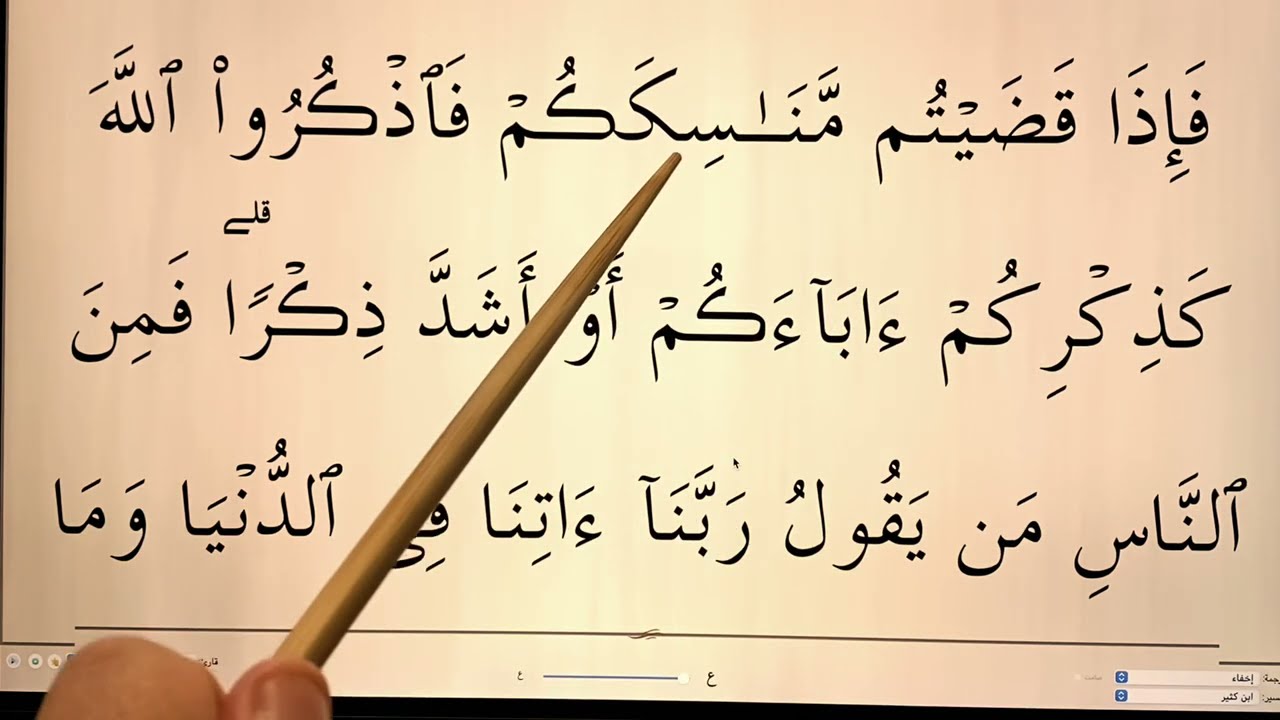 فَإِذَا قَضَيْتُم مَّنَـٰسِكَكُمْ فَٱذْكُرُوا۟ ٱللَّهَ
كَذِكْرِكُمْ ءَابَآءَكُمْ أَوْ أَشَدَّ ذِكْرًا ۗ فَمِنَ
ٱلنَّاسِ مَن يَقُولُ رَبَّنَآ ءَاتِنَا فِى ٱلدُّنْيَا وَمَا
ع ع
إخفاء
ابن كثير